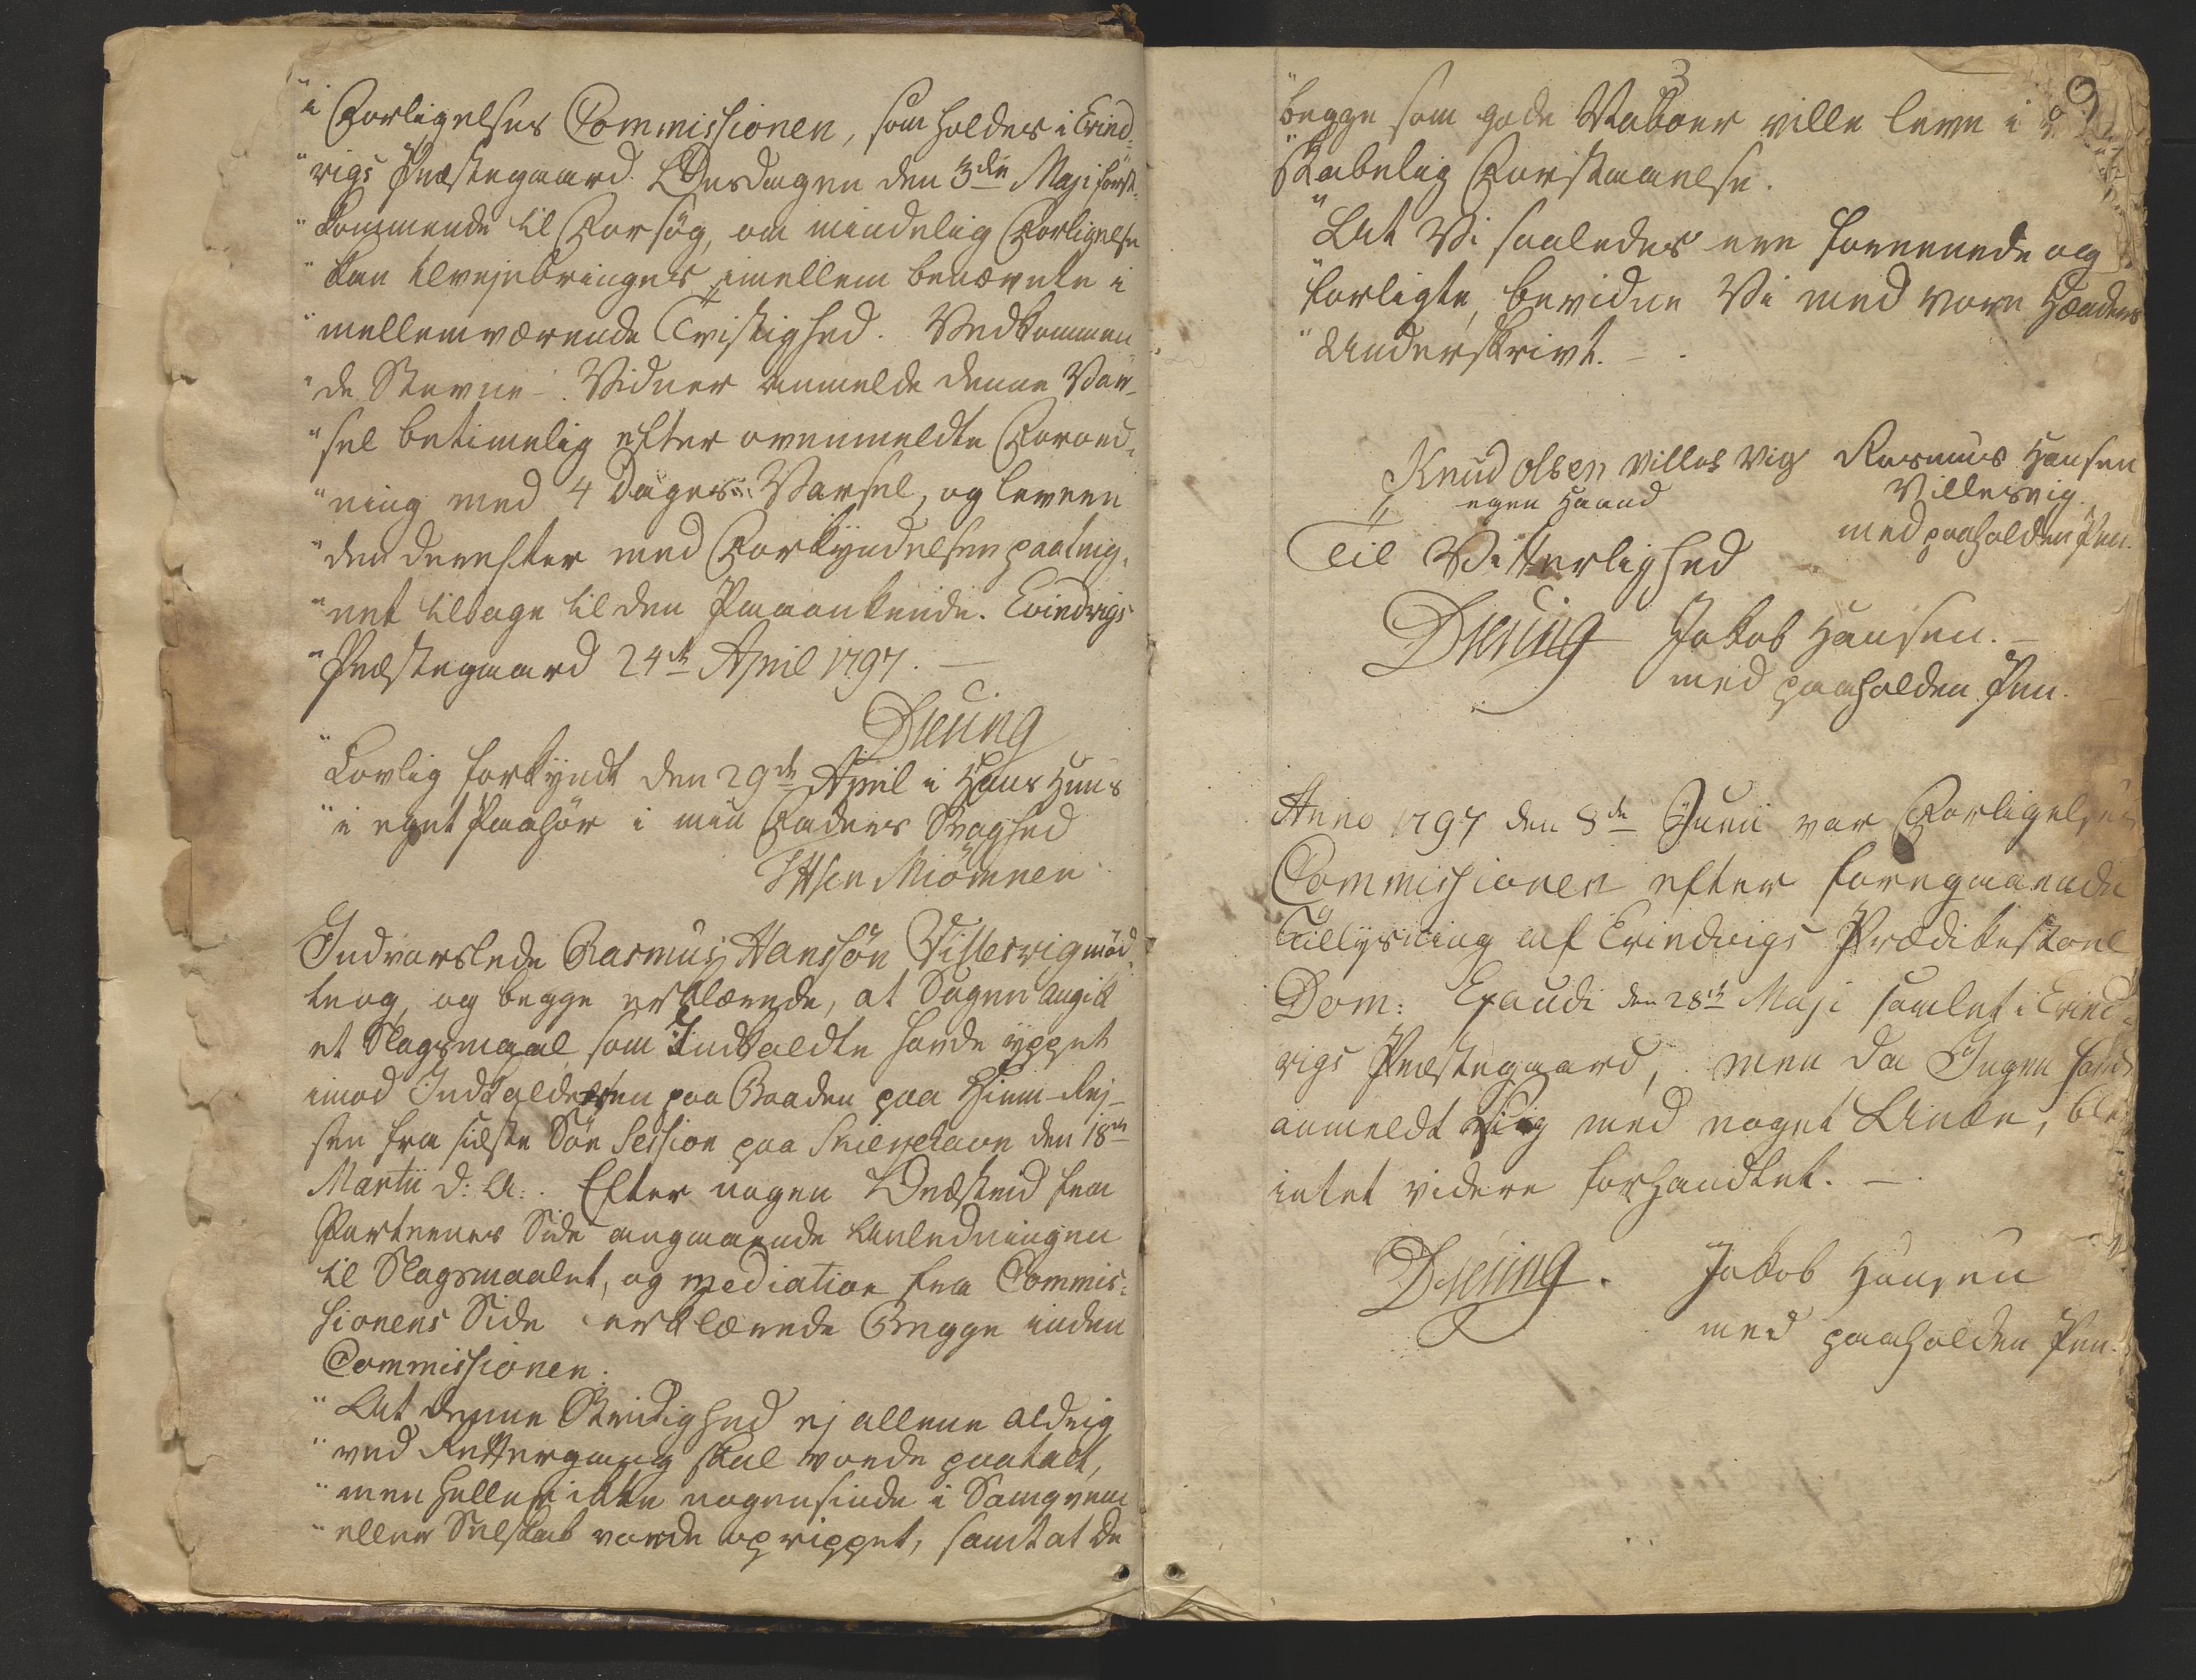 "i Forligelses Commissionen, som holdes i Evind-
"rigs Præstegaard Onsdagen den 3die Maji først-
"kommende til Forsøg, om mindelig Forligelse
"kan tilvejebringes imellem benævnte i
"mellemværende Tvistighed. Vedkommen
"de Stevne-Vidner anmelde denne Var-
"sel betimelig efter ovenmeldte Forord-
"ning med 4 Dages Varsel, og levere
"den derefter med Forkyndelsen paateg-
"net tilbage til den Paaankende. Evindvigs
"Præstegaard 24de April 1797. —
Dreüng
"Lovlig forkyndt den 29de April i Hans Huus
"i eget Paahør i min Faders Svaghed
Miömnen
Indvarslede Rasmus Hanssøn Villesvig mød-
te og, og begge erklærede, at Sagen angik
et Slagsmaal som Indkaldte havde yppet
imod Indkalderen paa Baaden paa Hiem-Rej-
sen fra sidste Søe Session paa Skiergehavn den 18de
Martii d: A:. Efter nogen Ordstrid fra
Parternes Side angaaende Anledningen
til Slagsmaalet, og mediation fra Commis-
sionens Side erklærede Begge inden
Commissionen:
"At denne Stridighed ej allene aldrig
"ved Rettergang skal vorde paatalt,
"men heller ikke nogensinde i Samqvem
"eller Selskab vorde oprippet, samt at de
3
"begge som gode Naboer ville leve i
"skabelig Forstaaelse.
"At Vi saaledes ere foreenede og
"forligte, bevidne Vi med vore Hænders
"Underskrivt. —
Knud olsen Villes Vig Rasmus Hansen
egen Haand Villesvig
med paaholden Pen.
Til Vitterlighed
Dreüng Jakob Hansen. —
med paaholden Pen.
Anno 1797 den 8de Junii var Forligelses
Commissionen efter foregaaende
Tillysning af Evindvigs Prædikestoel
Dom: Exaudi den 28de Maji samlet i Evind-
vigs Præstegaard, men da Ingen havde
anmeldt sig med noget Anke, blev
intet videre forhandlet. —
Dreüng. Jakob Hansen
med paaholden Pen.